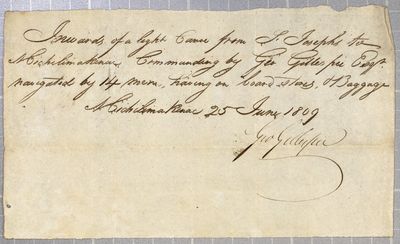 Inwards, of a light Canoe from St. Josephs to
Michilimakinac, Commanding by Geo Gillespie Esqr.
navigated by 14 men, having on board stores, & Baggage
Michilimakinac 25 June 1809
Geo Gillespie